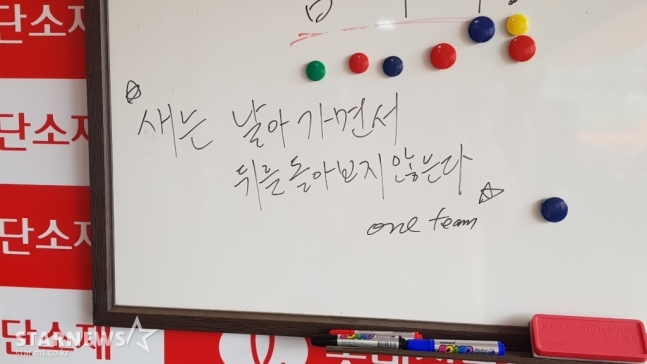 단소재
새는 날아가면서
단소재
뒤를 돌아보지 않는다
one team
단소재
단소재
STARNEWS
단소재